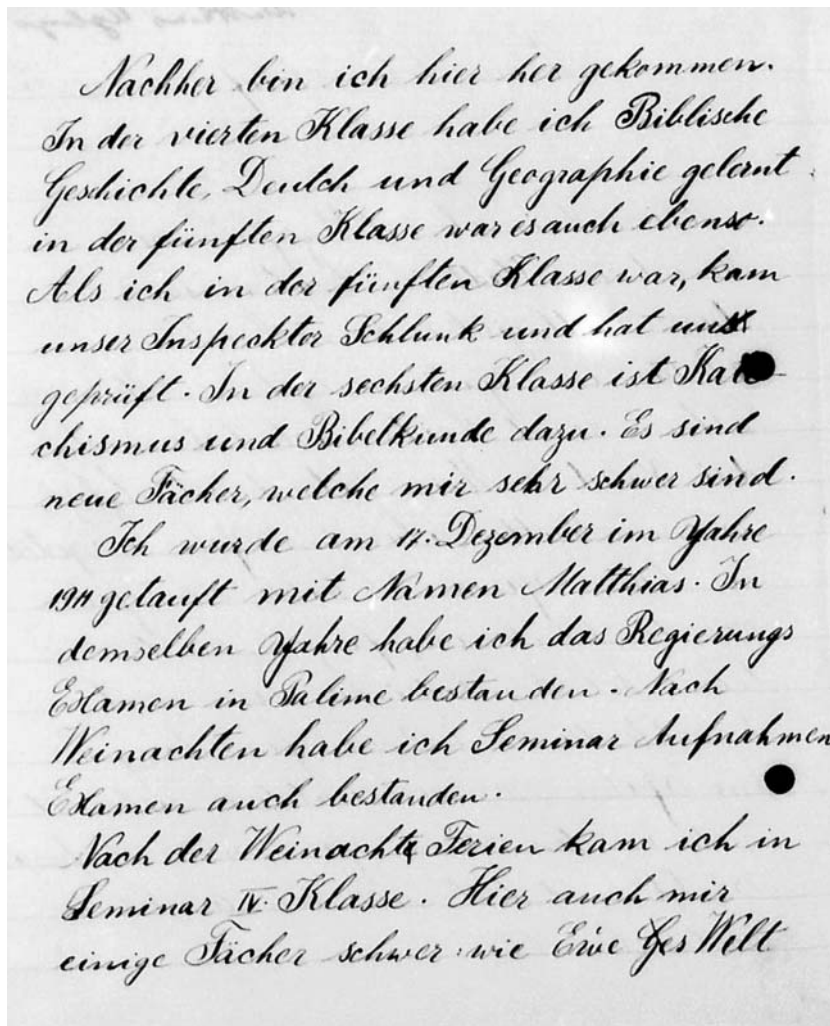 Nachher bin ich hier her gekommen.
In der vierten Klasse habe ich Biblische
Geschichte, Deutch und Geographie gelernt.
in der fünften Klasse war es auch ebenso.
Als ich in der fünften Klasse war, kam
unser Inspecktor Schlunk und hat uns
geprüft. In der sechsten Klasse ist Kate-
chismus und Bibelkunde dazu. Es sind
neue Fächer, welche mir sehr schwer sind.
Ich wurde am 17. Dezember im Yahre
1911 getauft mit Namen Matthias. In
demselben Yahre habe ich das Regierungs
Examen in Palime bestanden. Nach
Weinachten habe ich Seminar Aufnahmen
Examen auch bestanden.
Nach der Weinachts Ferien kam ich in
Seminar IV. Klasse. Hier auch mir
einige Fächer schwer: wie Ewe Ges Welt